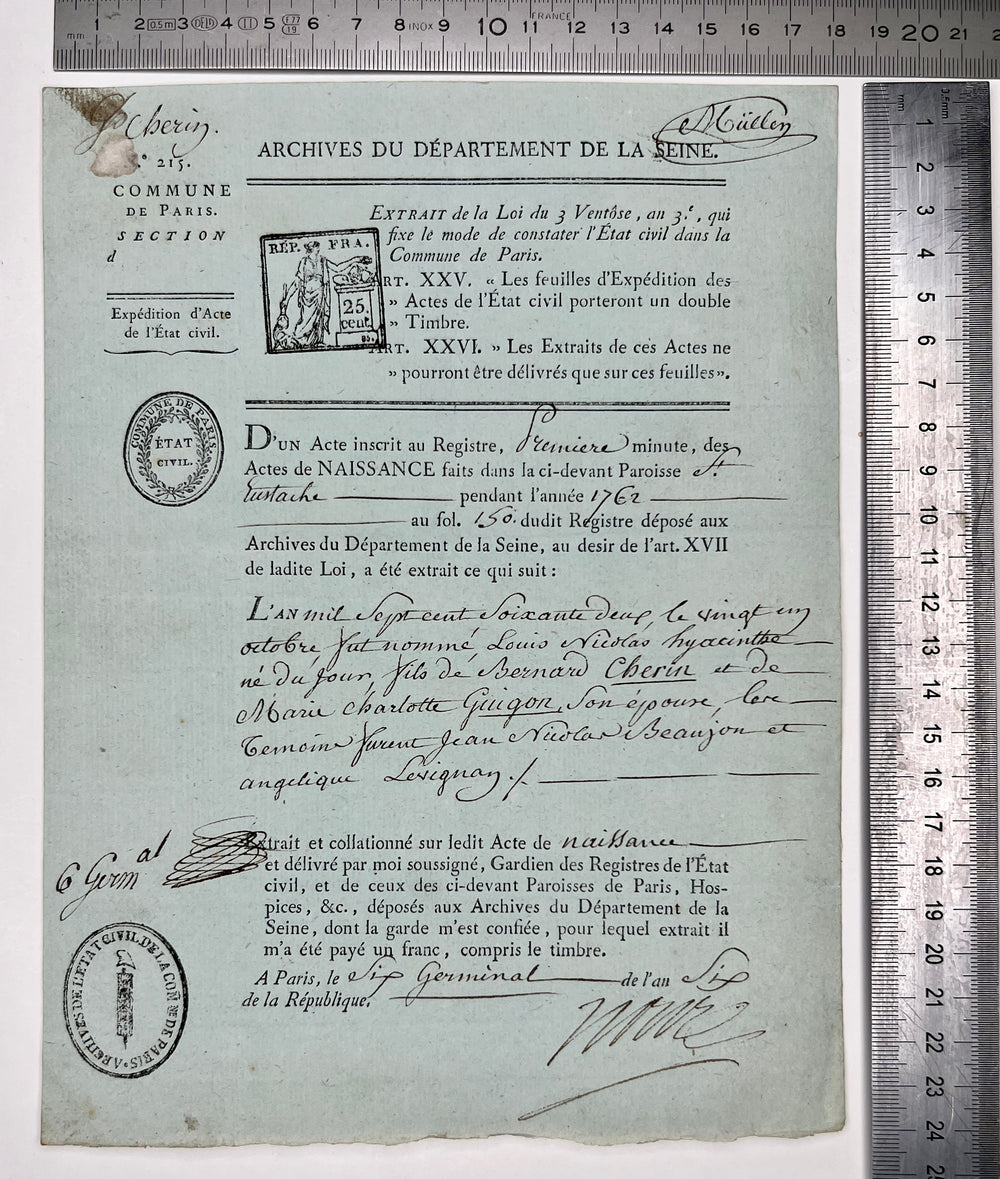 mm 2 0.5m 3 4 5 6 7 8 INOX 9 10 11 FRANCE 12 13 14 15 16 17 18 19 20 21
mm 0.5mm
1 2 3 4 5 6 7 8 9 10 11 12 13 14 15 16 17 18 19 20 21 22 23 24 25
Cherin.
Müller
N.° 215.
ARCHIVES DU DÉPARTEMENT DE LA SEINE.
COMMUNE
DE PARIS.
SECTION
d
Expédition d'Acte
de l'État civil.
EXTRAIT de la Loi du 3 Ventôse, an 3.e, qui
fixe le mode de constater l'État civil dans la
Commune de Paris.
RÉP. FRA.
25
cent.
ART. XXV. « Les feuilles d'Expédition des
» Actes de l'État civil porteront un double
» Timbre.
ART. XXVI. » Les Extraits de ces Actes ne
» pourront être délivrés que sur ces feuilles ».
COMMUNE DE PARIS.
ÉTAT
CIVIL.
D'UN Acte inscrit au Registre, Premiere minute, des
Actes de NAISSANCE faits dans la ci-devant Paroisse St.
Eustache pendant l'année 1762
au fol. 150. dudit Registre déposé aux
Archives du Département de la Seine, au desir de l'art. XVII
de ladite Loi, a été extrait ce qui suit :
L'AN mil Sept cent Soixante deux, le vingt un
octobre fut nommé Louis Nicolas hyacinthe
né du jour, fils de Bernard Cherin et de
Marie Charlotte Guigon, Son épouse, les
Temoins furent Jean Nicolas Beaujon et
angelique Levignay ./
6 Germal
Extrait et collationné sur ledit Acte de naissance
et délivré par moi soussigné, Gardien des Registres de l'État
civil, et de ceux des ci-devant Paroisses de Paris, Hos-
pices, &c., déposés aux Archives du Département de la
Seine, dont la garde m'est confiée, pour lequel extrait il
m'a été payé un franc, compris le timbre.
A Paris, le Six Germinal de l'an Six
de la République.
ARCHIVES DE L'ETAT CIVIL DE LA COM.NE DE PARIS